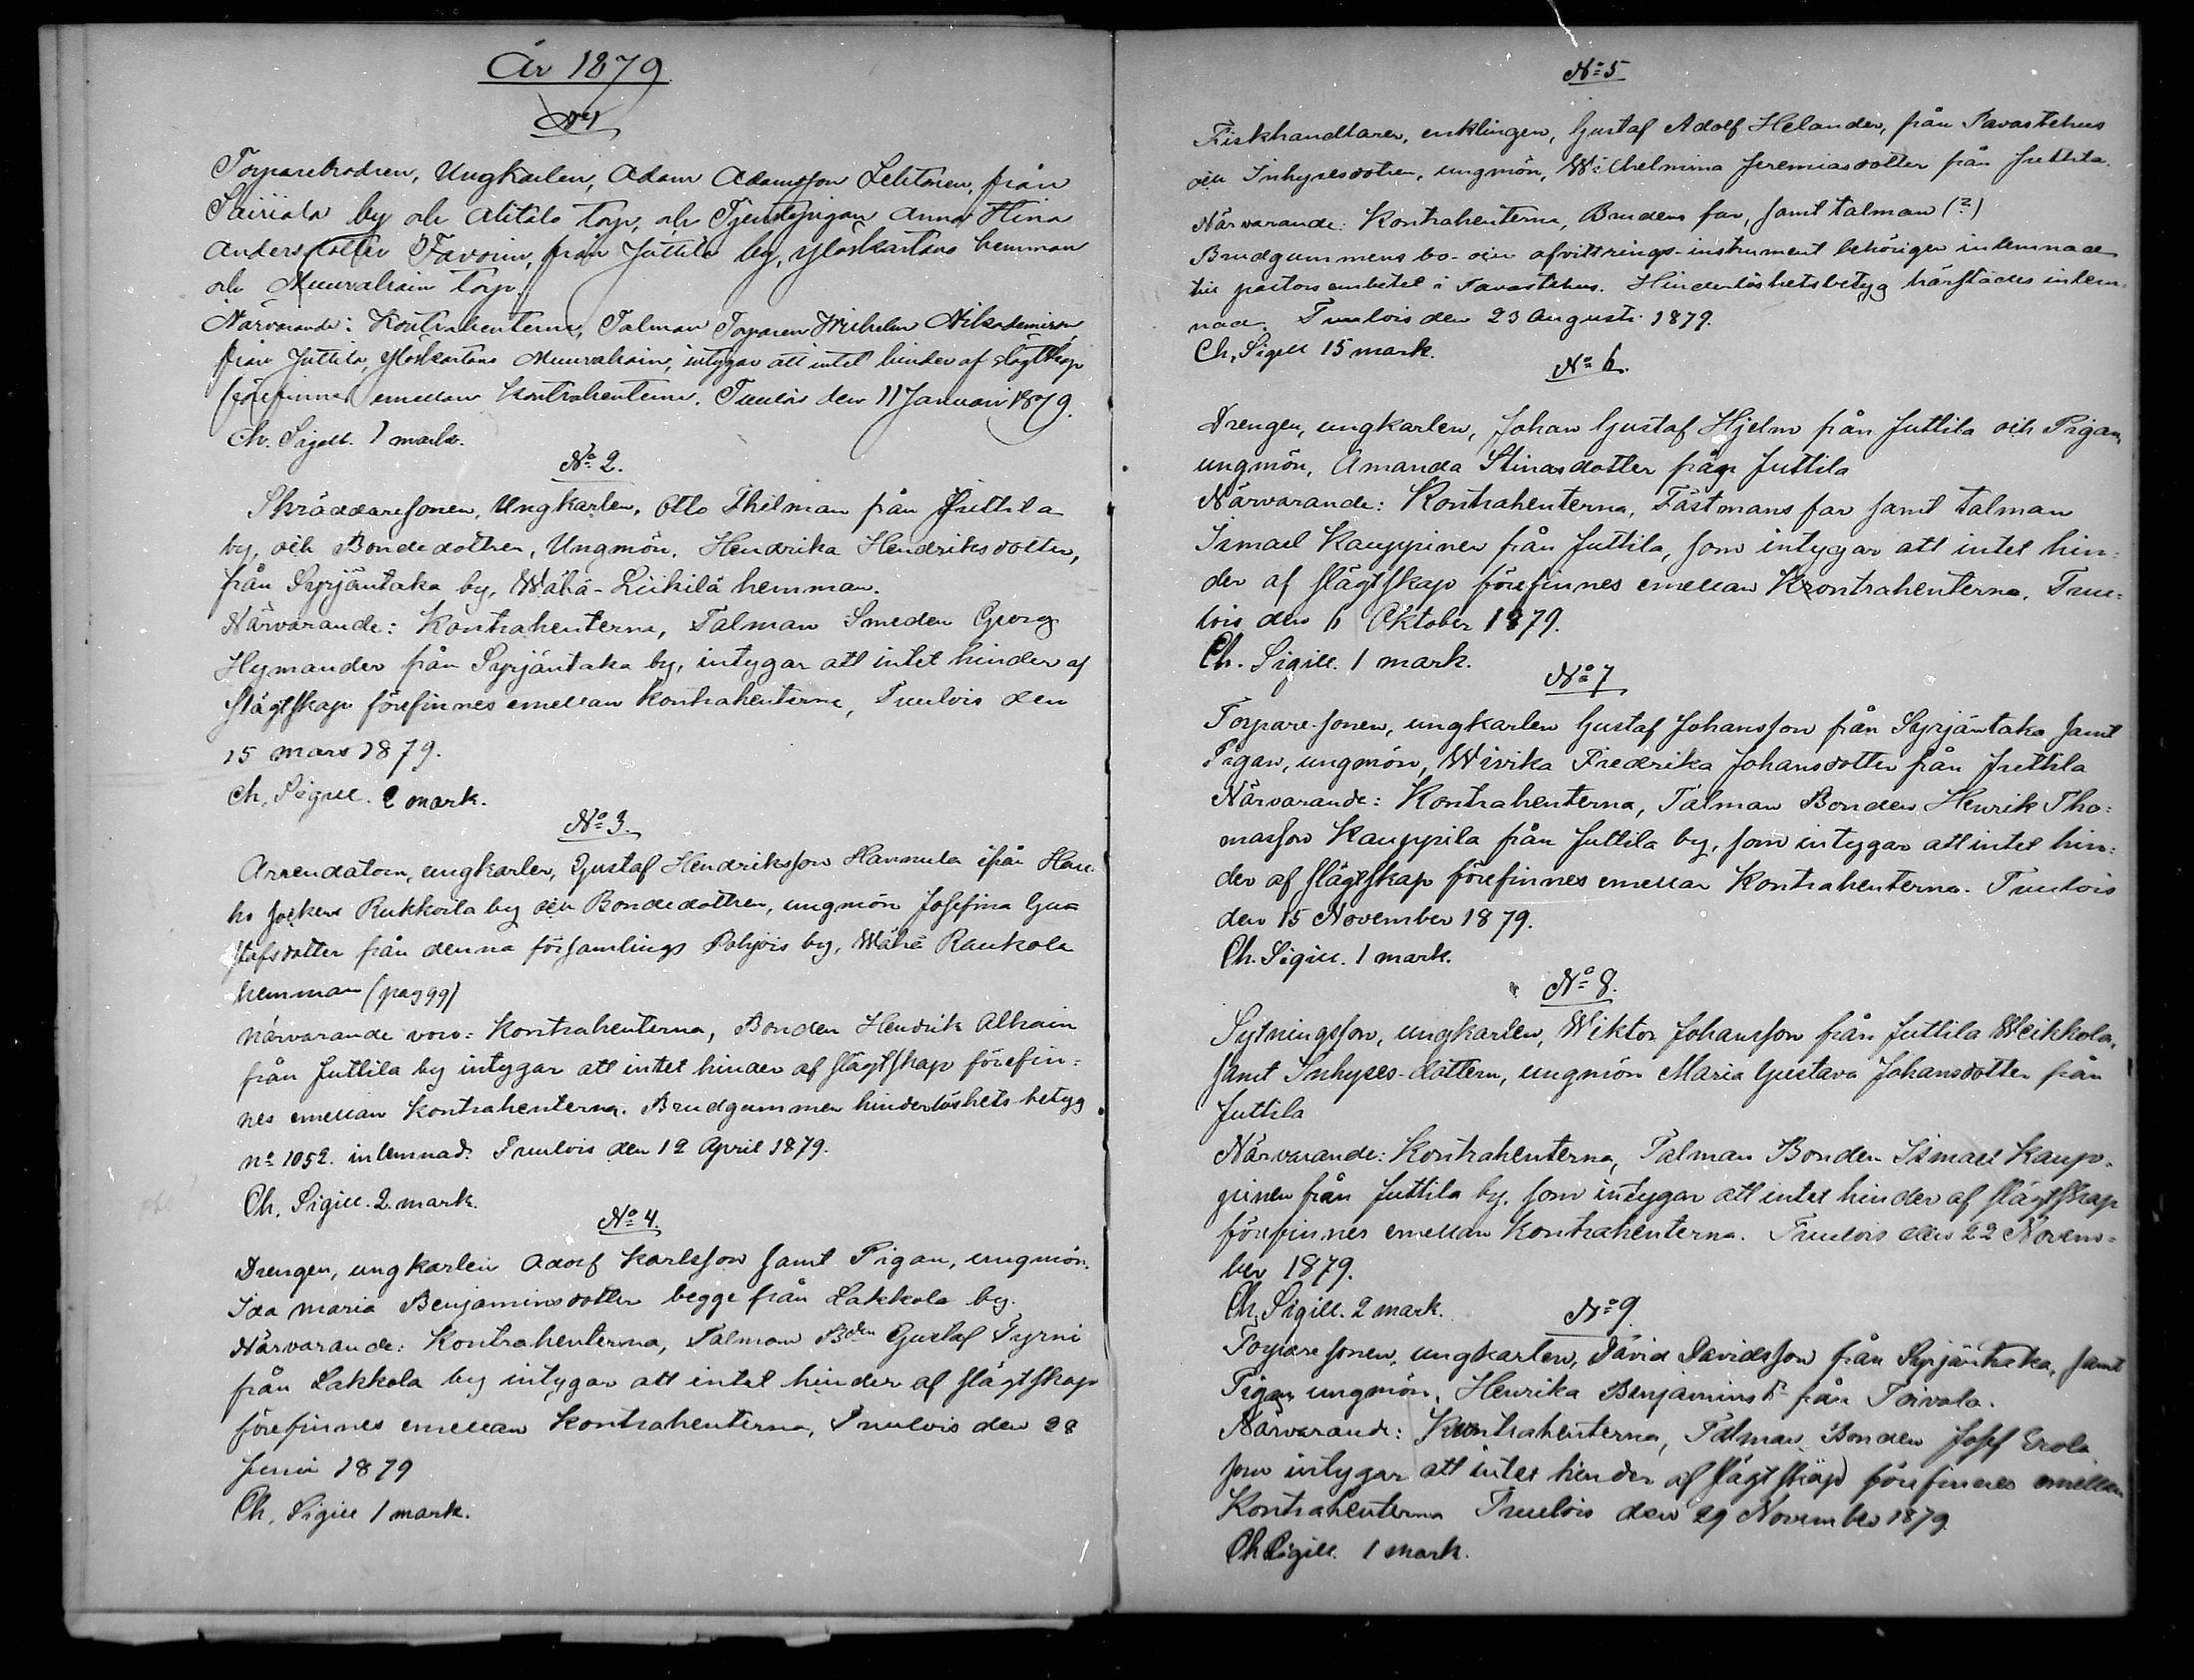 År 1879
No 1
Torparebrodren, Ungkarlen, Adam Adamsson Lehtonen, från
Sairiala by och Alitalo torp, och Tjenstepigan Anna Stina
Andersdotter Favorin, från Juttila by, Yloskartano hemman
och Muurahain torp.
Närvarande: Kontrahenterna, Talman Torparen Wilhelm
från Juttila, Yloskartano Muurahain, intygar att intet hinder af slägtskap
förefinnes emellan Kontrahenterne. Tuulois den 11 Januari 1879.
Ch. Sigill. 1 mark.
No 2.
Skräddaresonen, Ungkarlen, Otto Thilman från Juttila
by, och Bondedottren, Ungmön, Hendrika Hendriksdotter,
från Syrjäntaka by, Wähä-Liikilä hemman.
Närvarande: Kontrahenterna, Talman Smeden Georg
Hymander från Syrjäntaka by, intygar att intet hinder af
slägtskap förefinnes emellan Kontrahenterne, Tuulois den
15 mars 1879.
Ch. Sigill. 2 mark.
No 3.
Arrendatorn, ungkarlen, Gustaf Hendriksson Hannula ifrån Hau-
ho socken Rukkoila by och Bondedottren, ungmön Josefina Gus-
tafsdotter från denna församlings Pohjois by, Wähä Raukola
hemman (pag 99)
närvarande voro: Kontrahenterna, Bonden Hendrik Alhain
från Juttila by intygar att intet hinder af slägtskap förefin-
nes emellan Kontrahenterna. Brudgummen hinderlöshets betyg
no 1052. inlemnad. Tuulois den 12 April 1879.
Ch. Sigill. 2 mark.
No 4.
Drengen, ungkarlen Adolf Karlsson samt Pigan, ungmön.
Ida Maria Benjaminsdotter begge från Lakkola by.
Närvarande: Kontrahenterna, Talman Bden Gustaf Tyrni
från Lakkola by intygar att intet hinder af slägtskap
förefinnes emellan Kontrahenterna, Tuulois den 28
Juni 1879
Ch. Sigill 1 mark.
No 5
Fiskhandlaren, enklingen, Gustaf Adolf Helander, från Tavastehus
och Inhysesdotren, ungmön, Wilhelmina Jeremiasdotter från Juttila.
Närvarande: Kontrahenterna, Brudens far, samt talman (?)
Brudgummens bo- och afvittrings-instrument behörigen inlemnade
till pastorsembetet i Tavastehus. Hinderlöshetsbetyg härstädes inlem-
nad. Tuulois den 23 Augusti 1879.
Ch. Sigill 15 mark.
No 6.
Drengen, ungkarlen, Johan Gustaf Hjelm från Juttila och Pigan,
ungmön, Amanda Stinasdotter från Juttila
Närvarande: Kontrahenterna, Fästmans far samt talman
Ismael Kauppinen från Juttila, som intygar att intet hin-
der af slägtskap förefinnes emellan Kontrahenterna. Tuu-
lois den 11 Oktober 1879.
Ch. Sigill. 1 mark.
No 7
Torpare-sonen, ungkarlen Gustaf Johansson från Syrjäntaka samt
Pigan, ungmön, Wivika Fredrika Johansdotter från Juttila
Närvarande: Kontrahenterna, Talman Bonden Henrik Tho-
masson Kauppila från Juttila by, som intygar att intet hin-
der af slägtskap förefinnes emellan Kontrahenterna. Tuulois
den 15 November 1879.
Ch. Sigill. 1 mark.
No 8.
Sytningsson, ungkarlen, Wiktor Johansson från Juttila Weikkola,
samt Inhyses-dottern, ungmön Maria Gustava Johansdotter från
Juttila
Närvarande: Kontrahenterna, Talman Bonden Ismael Kaup-
pinen från Juttila by, som intygar att intet hinder af slägtskap
förefinnes emellan Kontrahenterna. Tuulois den 22 Novem-
ber 1879.
Ch. Sigill. 2 mark.
No 9.
Torparesonen, ungkarlen, David Davidsson från Syrjäntaka, samt
Pigan ungmön, Henrika Benjaminsdr från Toivola.
Närvarande: Kontrahenterna, Talman Bonden Josef Erola
som intygar att intet hinder af slägtskap förefinnes emellan
Kontrahenterna Tuulois den 29 November 1879.
Ch Sigill. 1 mark.